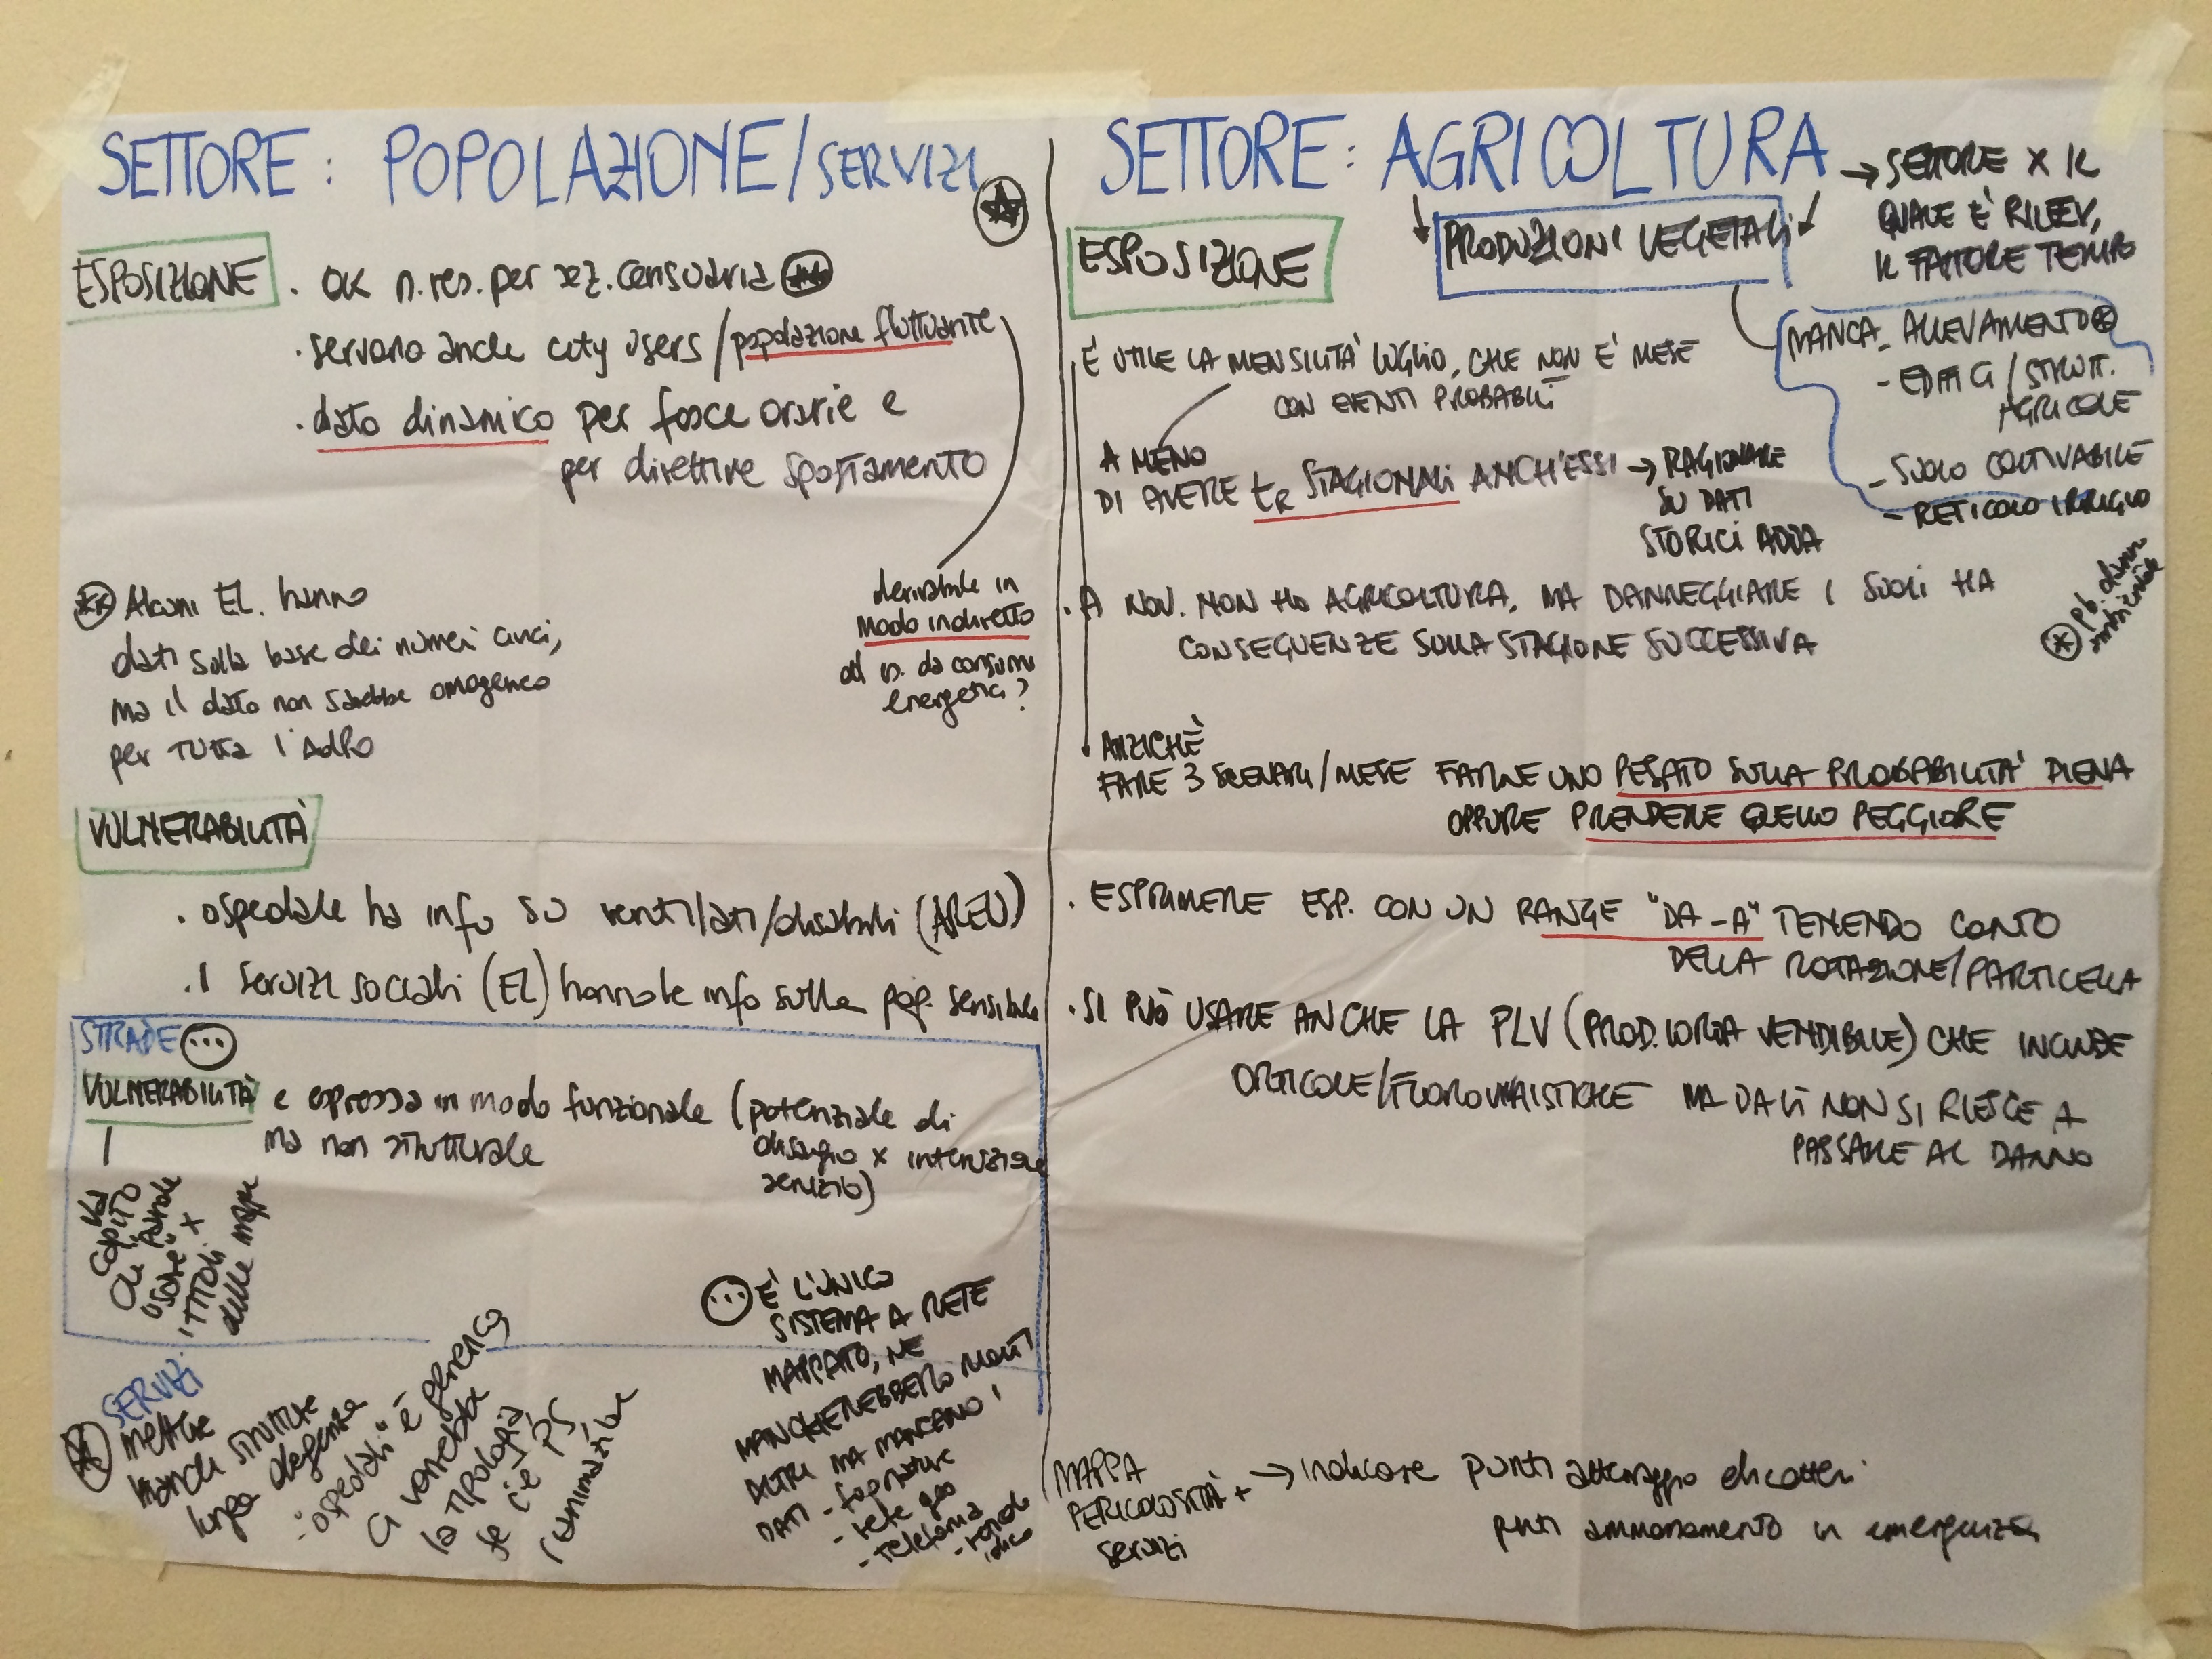 SETTORE: POPOLAZIONE/SERVIZI
ESPOSIZIONE
. OK n. res. per sez. censuaria **
. servono anche city users / popolazione fluttuante
. dato dinamico per fasce orarie e
per direttive spostamento
derivabile in
modo indiretto
ad es. da consumi
energetici?
** Alcuni EL. hanno
dati sulla base dei numeri civici,
ma il dato non sarebbe omogeneo
per tutta l'AdPo
VULNERABILITÀ
. ospedale ha info su ventilati/disabili (AREU)
. I servizi sociali (EL) hanno le info sulla pop. sensibile
STRADE ...
VULNERABILITÀ è espressa in modo funzionale (potenziale di
ma non strutturale
disagio x interruzione
servizio)
Va
capito
che parole
"usare" x
i titoli
delle mappe
... È L'UNICO
SISTEMA A RETE
MAPPATO, NE
MANCHEREBBERO MOLTI
ALTRI MA MANCANO I
DATI - fognature
- rete gas
- telefonia
- reticolo
idrico
SERVIZI
mettere
anche strutture
lunga degenza
- "ospedali" è generico
ci vorrebbe
la tipologia,
se c'è PS
/ rianimazione
SETTORE: AGRICOLTURA
→ SETTORE X IL
QUALE È RILEV.
IL FATTORE TEMPO
PRODUZIONI VEGETALI
ESPOSIZIONE
MANCA - ALLEVAMENTO *
- EDIFICI / STRUTT.
AGRICOLE
- SUOLO COLTIVABILE
- RETICOLO IRRIGUO
* pb. danno
ambientale
È UTILE LA MENSILITÀ LUGLIO, CHE NON È MESE
CON EVENTI PROBABILI
A MENO
DI AVERE tR STAGIONALI ANCH'ESSI → RAGIONARE
SU DATI
STORICI ADDA
. A NOV. NON HO AGRICOLTURA, MA DANNEGGIARE I SUOLI HA
CONSEGUENZE SULLA STAGIONE SUCCESSIVA
ANZICHÈ
FARE 3 SCENARI/MESE FARNE UNO PESATO SULLA PROBABILITÀ PIENA
OPPURE PRENDERE QUELLO PEGGIORE
. ESPRIMERE ESP. CON UN RANGE "DA-A" TENENDO CONTO
DELLA ROTAZIONE/PARTICELLA
. SI PUÒ USARE ANCHE LA PLV (PROD. LORDA VENDIBILE) CHE INCLUDE
ORTICOLE/FLOROVIVAISTICHE MA DA LÌ NON SI RIESCE A
PASSARE AL DANNO
MAPPA
PERICOLOSITÀ +
servizi
→ indicare punti atterraggio elicotteri
punti ammassamento in emergenza